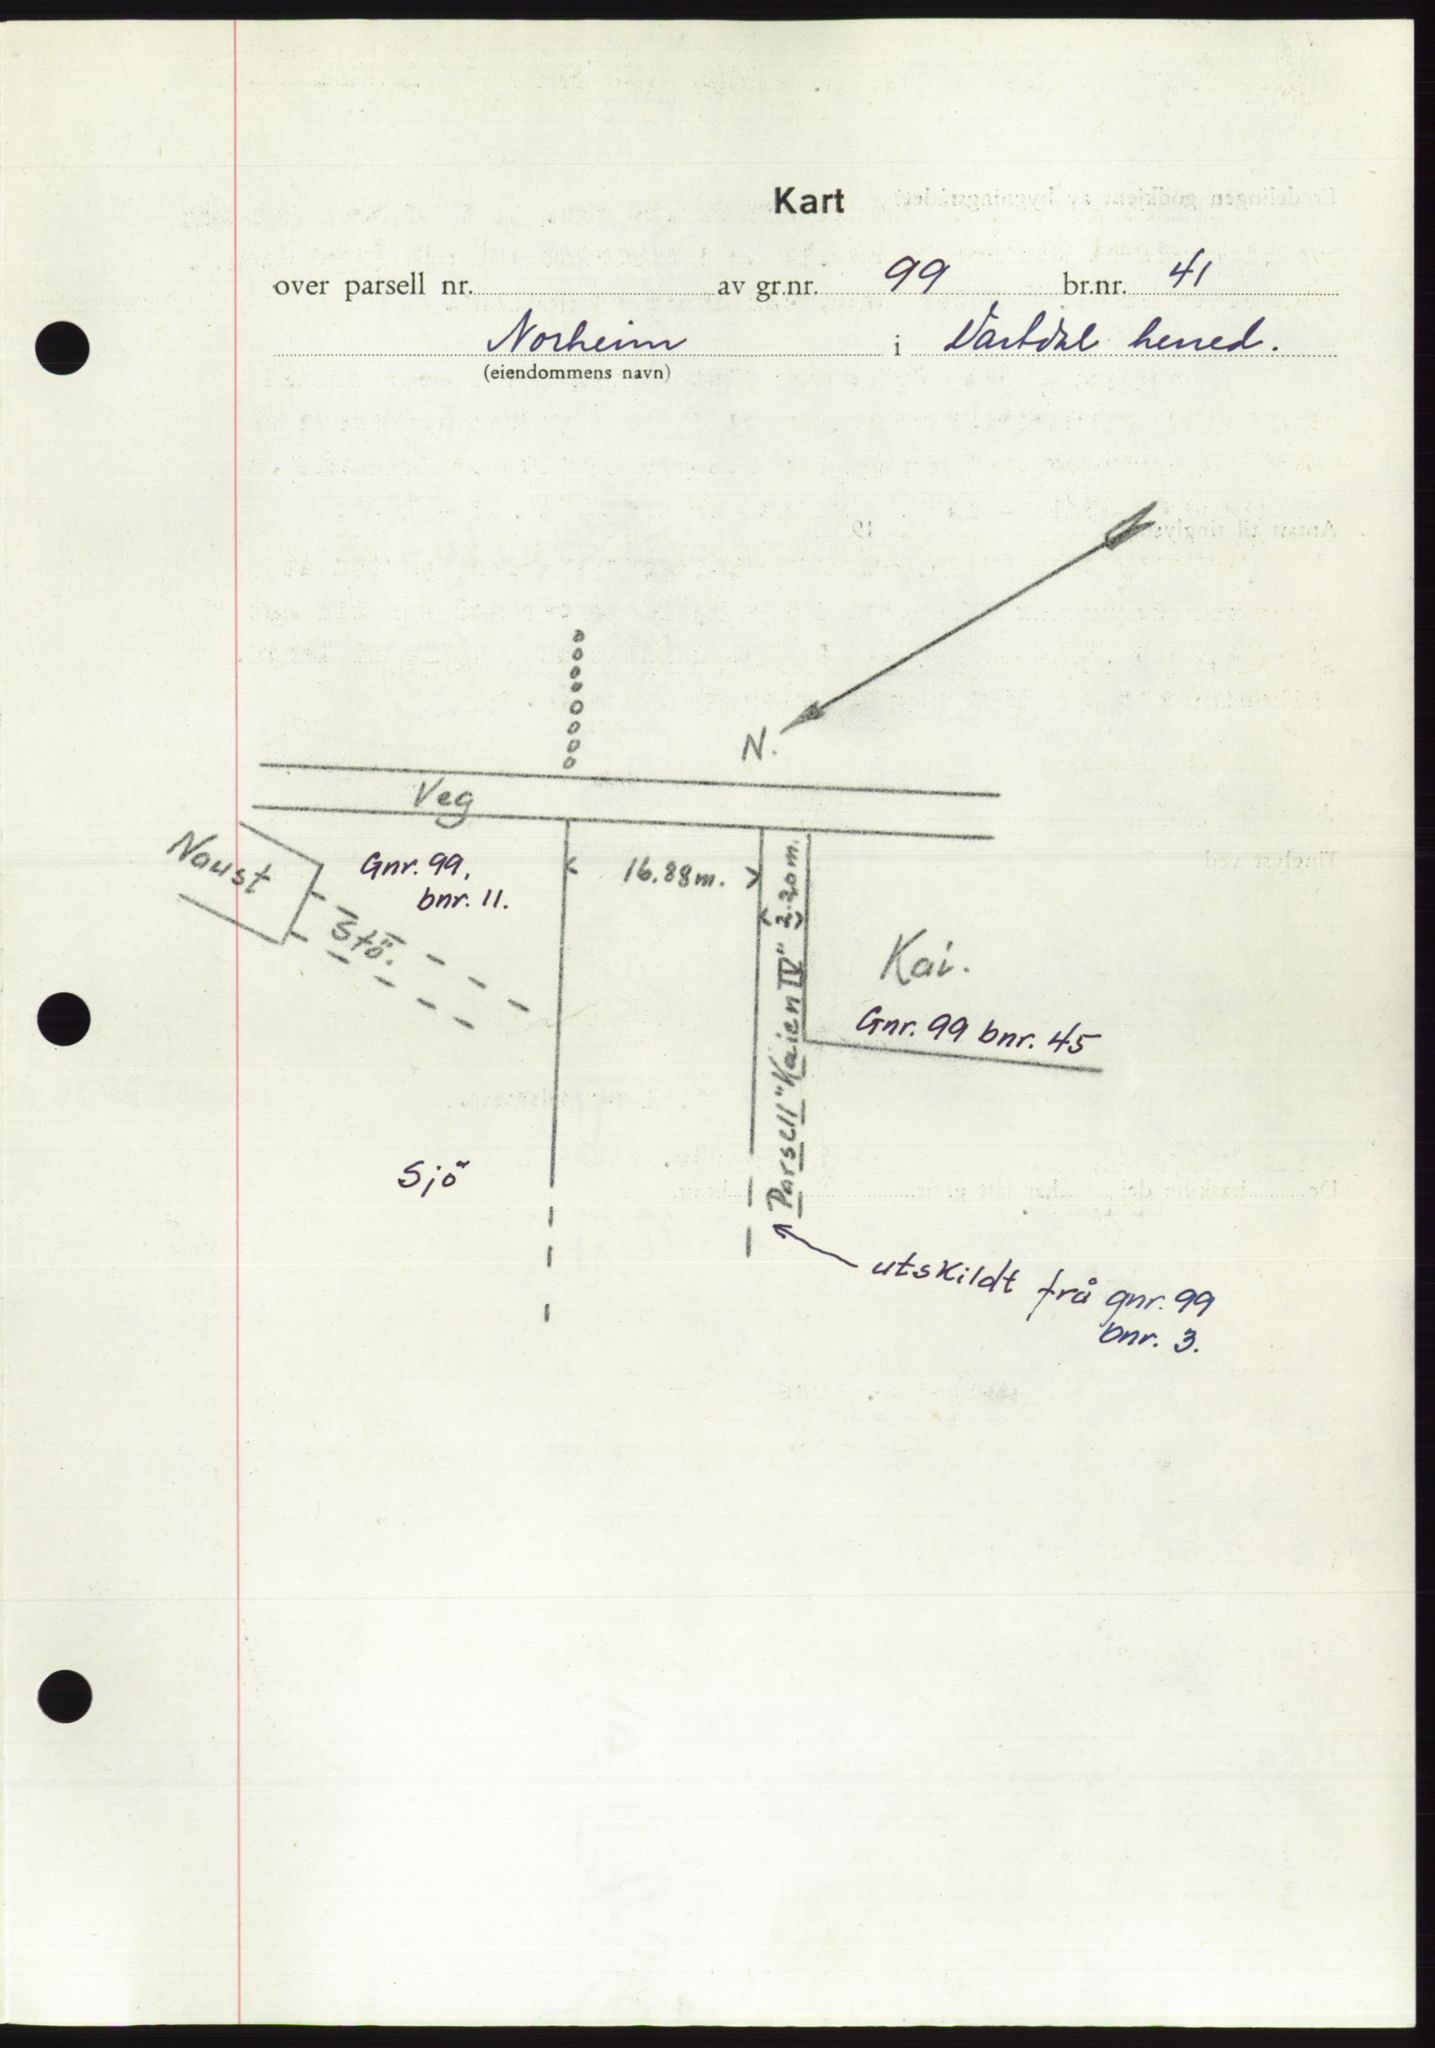 Kart
over parsell nr. av gr.nr. 99 br.nr. 41
Norheim i Vartdal herred.
(eiendommens navn)
N.
Veg
Naust
Gnr. 99,
bnr. 11.
Stö.
16.88m.
2.20m.
Parsell "Kaien IV"
Kai.
Gnr. 99 bnr. 45
Sjö
utskildt frå gnr. 99
bnr. 3.